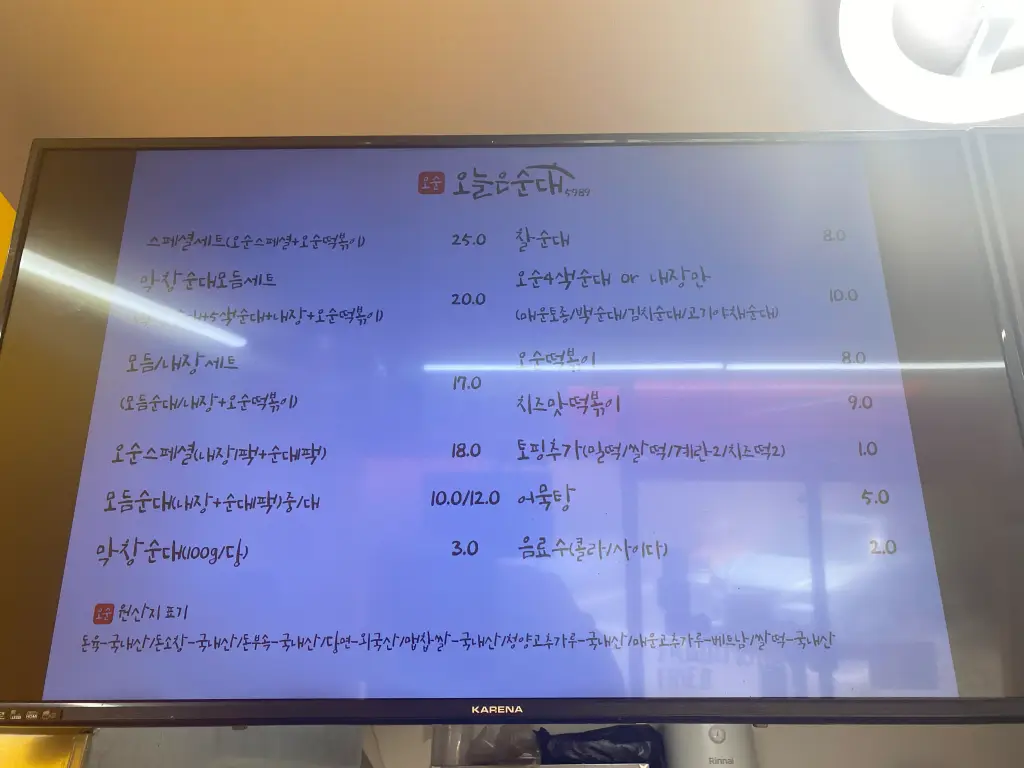 오순 오늘은순대 5989
스페셜세트(오순스페셜+오순떡볶이) 25.0
막창순대모듬세트 20.0
+5색순대+내장+오순떡볶이)
모듬/내장세트 17.0
(모듬순대/내장+오순떡볶이)
오순스페셜(내장1팩+순대1팩) 18.0
모듬순대(내장+순대1팩)중/대 10.0/12.0
막창순대(100g/당) 3.0
찰순대 8.0
오순4색순대 or 내장만 10.0
(매운토종/백순대/김치순대/고기야채순대)
오순떡볶이 8.0
치즈맛떡볶이 9.0
토핑추가(밀떡/쌀떡/계란2/치즈떡2) 1.0
어묵탕 5.0
음료수(콜라/사이다) 2.0
오순 원산지 표기
돈육-국내산/돈소창-국내산/돈부속-국내산/당면-외국산/맵찹쌀-국내산/청양고추가루-국내산/매운고추가루-베트남/쌀떡-국내산
KARENA
Rinnai